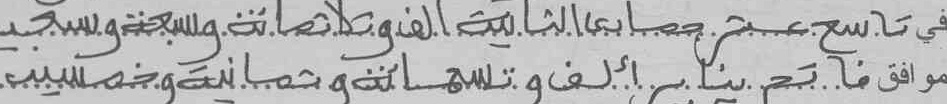 في تاسع عشر جمادى الثانية الف وثلاثمائة وسبعة وسبعين
موافق فاتح يناير ألف وتسعمائة وثمانية وخمسين